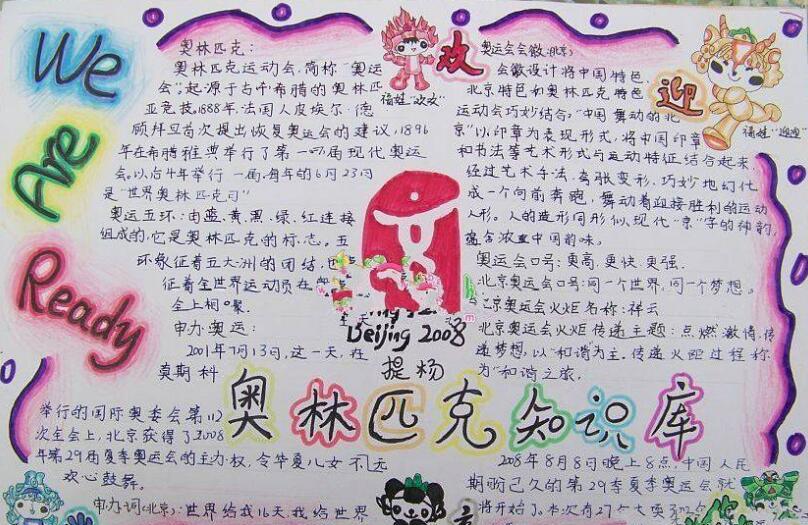 We
Are
Ready
奥林匹克：
奥林匹克运动会，简称“奥运
会”，起源于古希腊的奥林匹
亚竞技。1888年法国人皮埃尔·德
顾拜旦首次提出恢复奥运会的建议，1896
年在希腊雅典举行了第一届现代奥运
会。以后4年举行一届，每年的6月23日
是“世界奥林匹克日”
奥运五环：由蓝、黄、黑、绿、红连接
组成的，它是奥林匹克的标志。五
环象征着五大洲的团结，也
征着全世界运动员在
全上相聚。
申办奥运：
2001年7月13日，这一天，在
莫斯科
举行的国际奥委会第112
次全会上，北京获得了2008
年第29届夏季奥运会的主办权，令华夏儿女
欢心鼓舞。
申办词(北京)：世界给我16天，我给世界
欢
福娃“欢欢”
迎
福娃“迎迎”
奥运会会徽(北京)
会徽设计将中国特色，
北京特色和奥林匹克特色
运动会巧妙结合。“中国舞动的北
京”以印章为表现形式，将中国印章
和书法等艺术形式与运动特征结合起来，
经过艺术手法，夸张变形，巧妙地幻化
成一个向前奔跑，舞动着迎接胜利的运动
人形。人的造形同形似现代“京”字的神韵，
蕴含浓重中国韵味。
奥运会口号：更高、更快、更强。
北京奥运会口号：同一个世界，同一个梦想。
北京奥运会火炬名称：祥云
北京奥运会火炬传递主题：点燃激情，传
递梦想，以“和谐”为主，传递火炬过程称
为“和谐之旅。
Beijing 2008
提杨
奥林匹克知识库
208年8月8日晚上8点，中国人民
期盼已久的第29季夏季奥运会就
将开始了。本次有27个大项302个
京